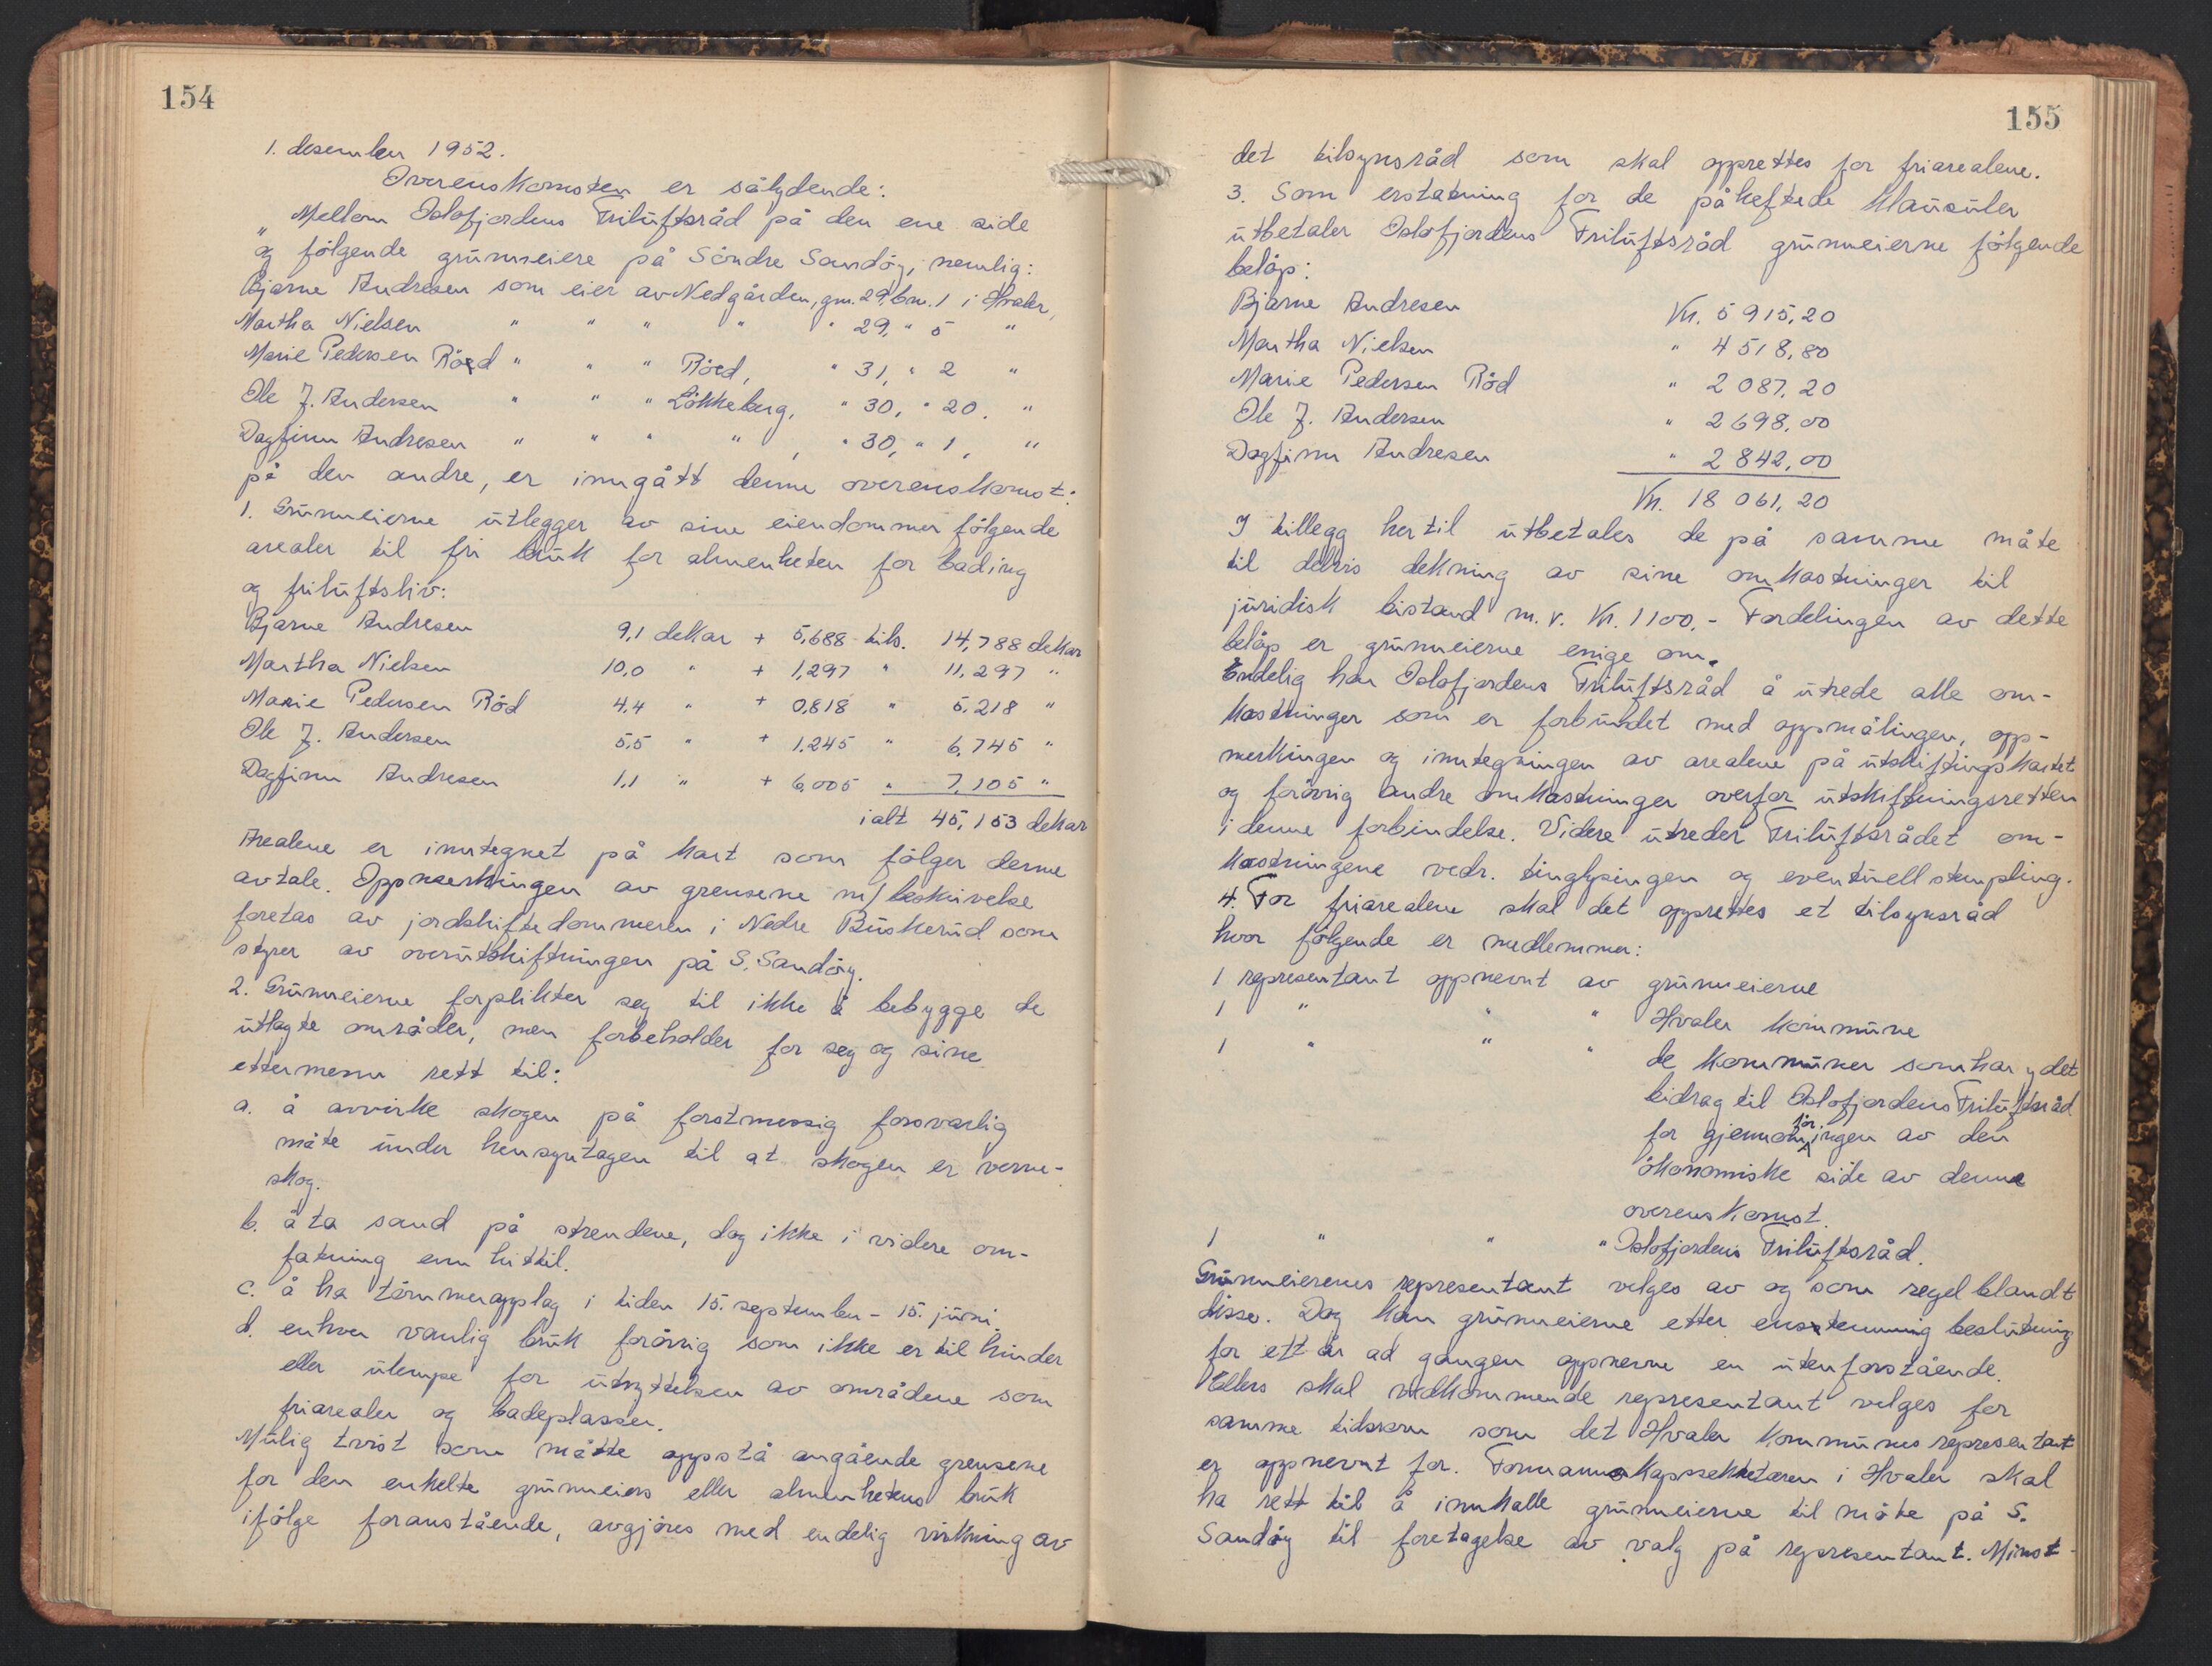 154
1. desember 1952.
Overenskomsten er sålydende:
„ Mellem Oslofjordens Friluftsråd på den ene side
og følgende grunneiere på Söndre Sandöy, nemlig:
Bjarne Andresen som eier av Nedgården, gnr. 29, bnr. 1 i Hvaler,
Martha Nielsen " " " " " 29, " 5 "
Marie Pedersen Röed " " " Röed, " 31, " 2 "
Ole J. Andersen " " " Lökkeberg, " 30, " 20. "
Dagfinn Andresen " " " " , " 30, " 1, "
på den andre, er inngått denne overenskomst:
1. Grunneierne utlegger av sine eiendommer fölgende
arealer til fri bruk for almenheten for bading
og friluftsliv:
Bjarne Andresen 9,1 dekar + 5,688 tils. 14,788 dekar
Martha Nielsen 10,0 " + 1,297 " 11,297 "
Marie Pedersen Röd 4,4 " + 0,818 " 5,218 "
Ole J. Andersen 5,5 " + 1,245 " 6,745 "
Dagfinn Andresen 1,1 " + 6,005 " 7,105 "
ialt 45,153 dekar
Arealene er inntegnet på kart som fölger denne
avtale. Oppmerkingen av grensene m/ beskrivelse
foretas av jordskiftedommeren i Nedre Buskerud som
styrer av overutskiftningen på S. Sandöy.
2. Grunneierne forplikter seg til ikke å bebygge de
utlagte områder, men forbeholder for seg og sine
ettermenn rett til:
a. å avvirke skogen på forstmessig forsvarlig
måte under hensyntagen til at skogen er verne-
skog.
b. å ta sand på strendene, dog ikke i videre om-
fatning enn hittil.
c. å ha tömmeropplag i tiden 15. september - 15. juni.
d. enhver vanlig bruk forövrig som ikke er til hinder
eller ulempe for utnyttelsen av områdene som
friarealer og badeplasser.
Mulig tvist som måtte oppstå angående grensene
for den enkelte grunneiers eller almenhetens bruk
ifölge foranstående, avgjöres med endelig virkning av
155
det tilsynsråd som skal opprettes for friarealene.
3. Som erstatning for de påheftede klausuler
utbetaler Oslofjordens Friluftsråd grunneierne fölgende
belöp:
Bjarne Andresen Kr. 5 915,20
Martha Nielsen " 4 518,80
Marie Pedersen Röd " 2 087,20
Ole J. Andersen " 2 698,00
Dagfinn Andresen " 2 842,00
Kr. 18 061,20
I tillegg hertil utbetales de på samme måte
til delvis dekning av sine omkostninger til
juridisk bistand m.v. Kr. 1100.- Fordelingen av dette
belöp er grunneierne enige om.
Endelig har Oslofjordens Friluftsråd å utrede alle om-
kostninger som er forbundet med oppmålingen, opp-
merkingen og inntegningen av arealene på utskiftingskartet
og forövrig andre omkostninger overfor utskiftningsretten
i denne forbindelse. Videre utreder Friluftsrådet om-
kostningene vedr. tinglysingen og eventuell stempling.
4. For friarealene skal det opprettes et tilsynsråd
hvor fölgende er medlemmer:
1 representant oppnevnt av grunneierne
1 " " " Hvaler kommune
1 " " " de kommuner som har ydet
bidrag til Oslofjordens Friluftsråd
for gjennomföringen av den
ökonomiske side av denne
overenskomst.
1 " " " Oslofjordens Friluftsråd.
Grunneierenes representant velges av og som regel blandt
disse. Dog kan grunneierne etter enstemmig beslutning
for ett år ad gangen oppnevne en utenforstående.
Ellers skal vedkommende representant velges for
samme tidsrom som det Hvaler kommunes representant
er oppnevnt for. Formannskapssekretæren i Hvaler skal
ha rett til å innkalle grunneierne til möte på S.
Sandöy til foretagelse av valg på representant. Minst